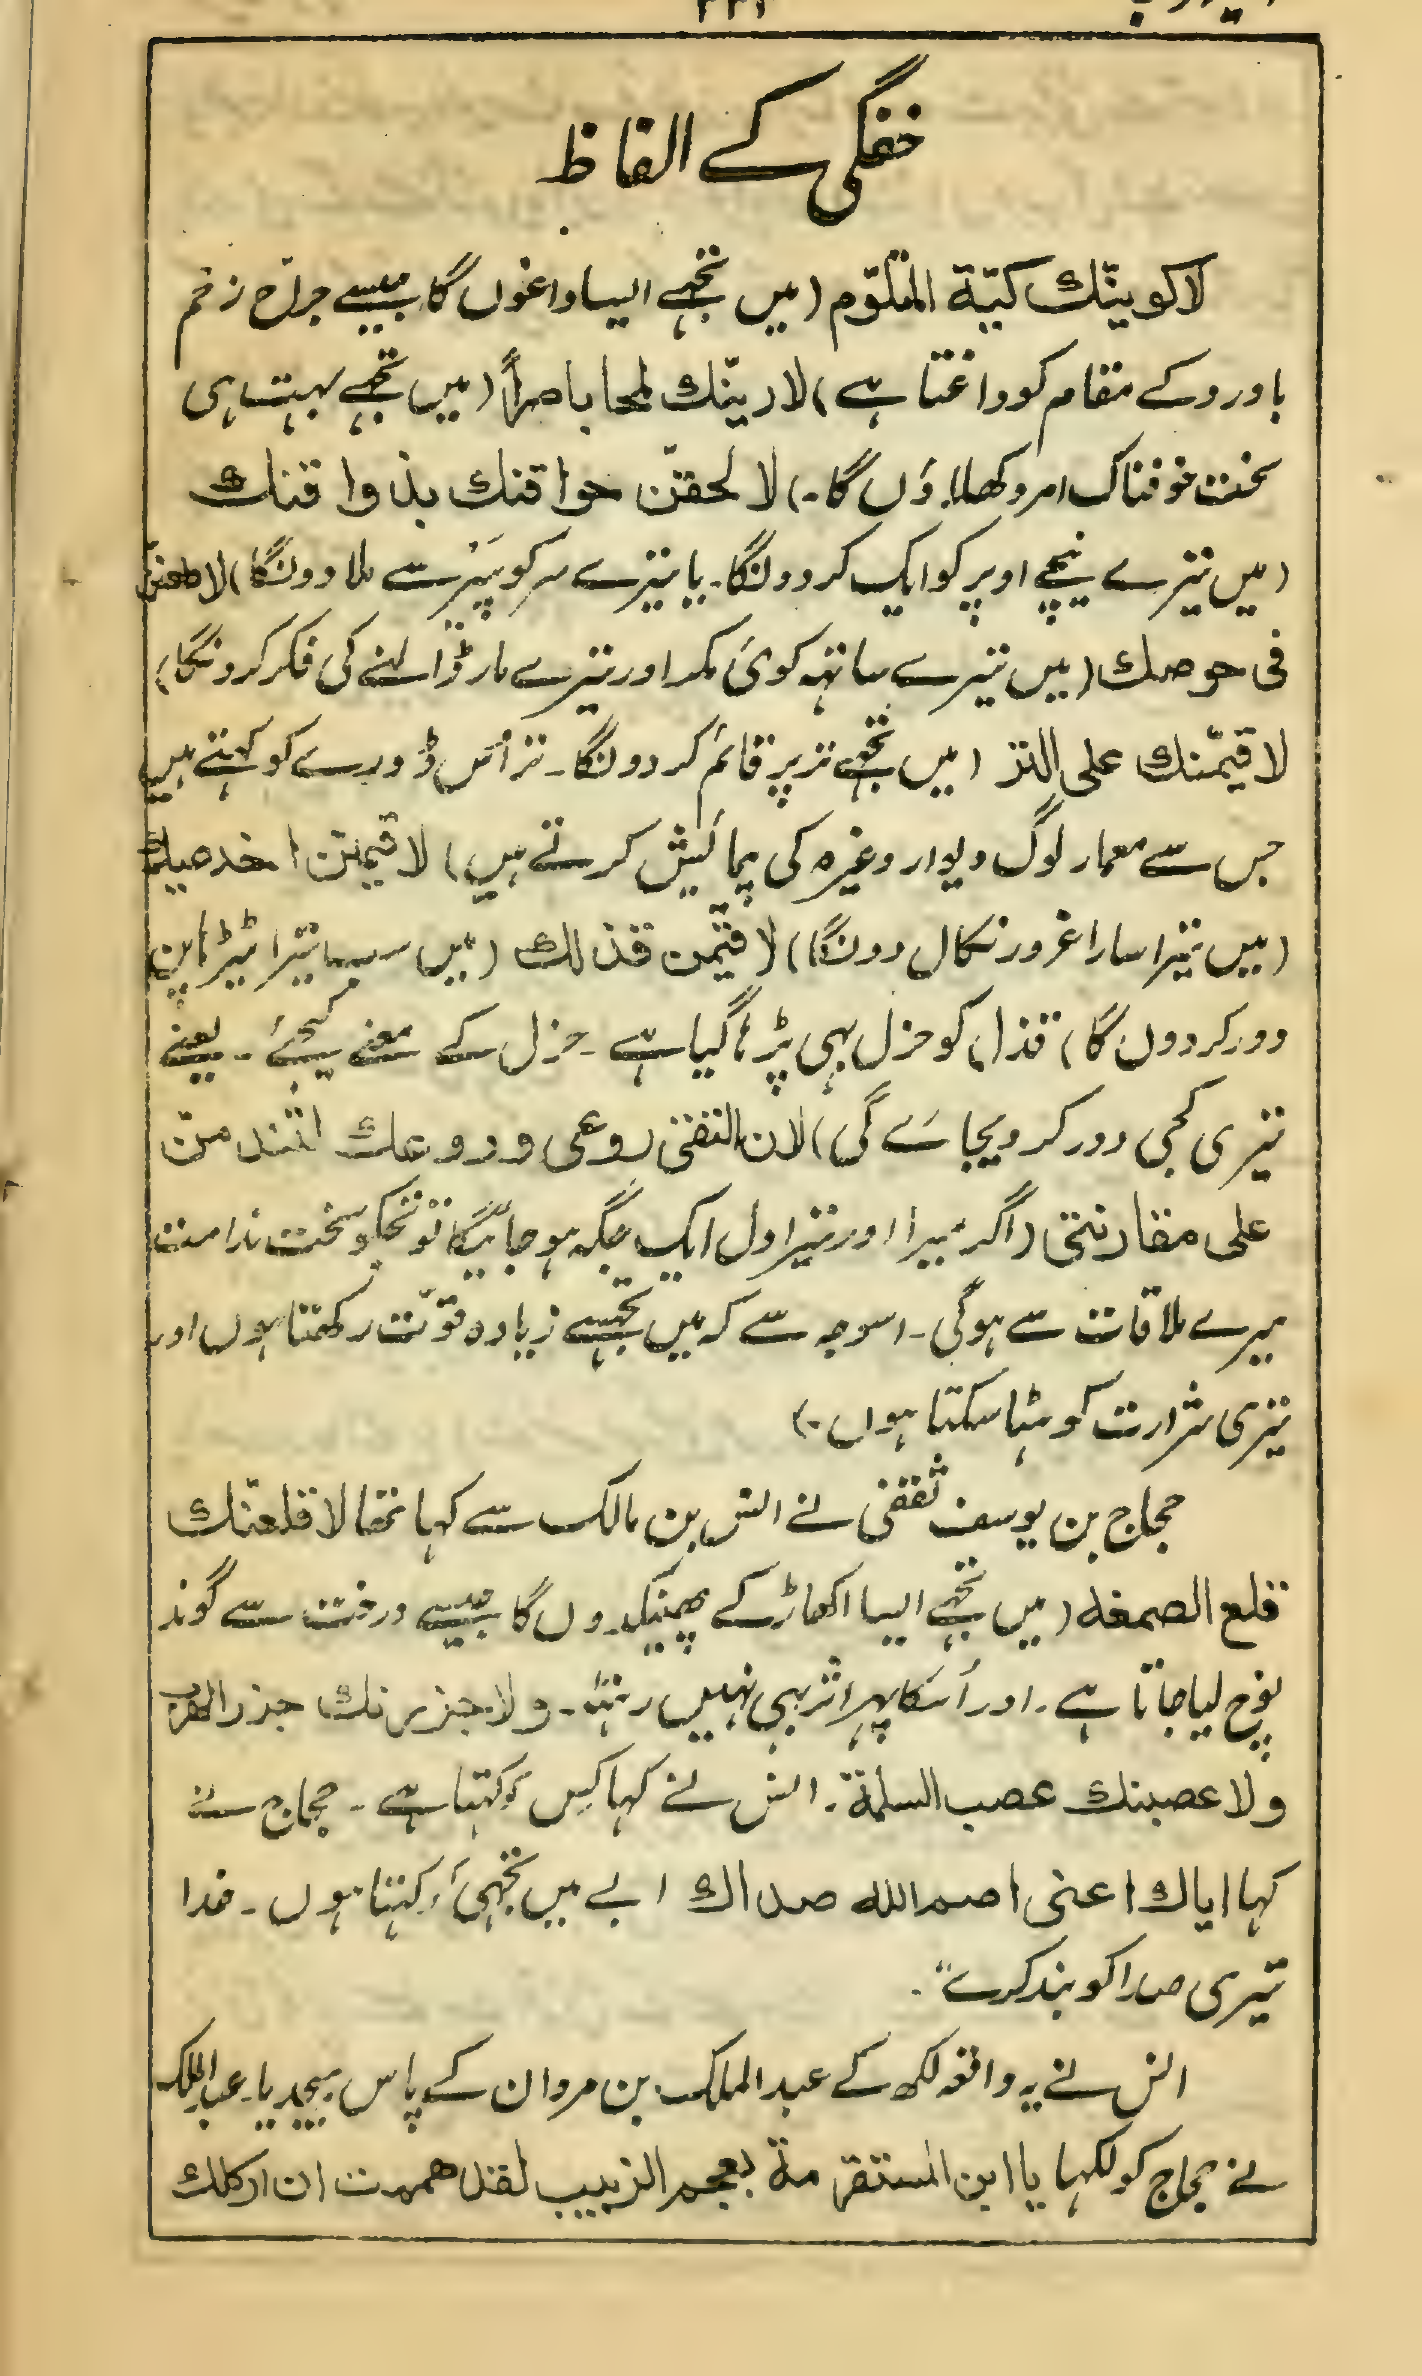 خفگی کے الفاظ
لاکوینّك کیّة المتلوّم (میں تجہے ایسا داغوں گا جیسے جرّاح زخم
یا درد کے مقام کو داغتا ہے) لارینّك لمحا باصراً (میں تجہے بہت ہی
سخت خوفناک امر دکھلاؤں گا۔) لا لحقنّ حواقنك بذواقنك
(میں تیرے نیچے اوپر کو ایک کر دونگا۔ یا تیرے سر کو پَیر سے ملا دونگا) لاطعننّ
فی حوصك (میں تیرے ساتہہ کوئی مکر اور تیرے مار ڈالنے کی فکر کرونگا)
لاقیمّنك علی التر (میں تجہے تر پر قائم کر دونگا۔ تر اُس ڈورے کو کہتے ہیں
جس سے معمار لوگ دیوار وغیرہ کی پیمائیش کرتے ہیں) لاقیمن اخدعیك
(میں تیرا سارا غرور نکال دونگا) لاقیمن قذلك (میں سب تیرا ٹیڑہا پن
دور کر دوں گا) قذل کو حزل بہی پڑہا گیا ہے۔ حزل کے معنے کجی۔ یعنے
تیری کجی دور کر دیجاے گی) لان التقی روعی و روعك لتندمنّ
علی مقارنتی (اگر میرا اور تیرا دل ایک جگہ ہو جائیگا تو تجکو سخت ندامت
میرے ملاقات سے ہوگی۔ اسوجہ سے کہ میں تجہسے زیادہ قوّت رکھتا ہوں اور
تیری شرارت کو ہٹا سکتا ہوں۔)
حجاج بن یوسف ثقفی نے انس بن مالک سے کہا تھا لاقلعنّك
قلع الصمغه (میں تجہے ایسا اکھاڑ کے پھینکدوں گا جیسے درخت سے گوند
نوچ لیا جاتا ہے۔ اور اُسکا پہر اثر بہی نہیں رہتا۔ ولاجزرنك جزر الضرب
ولاعصبنك عصب السلمة۔ انس نے کہا کِس کو کہتا ہے۔ حجاج نے
کہا ایاك اعنی اصم الله صداك ابے میں تجہی کو کہتا ہوں۔ خدا
تیری صدا کو بند کرے"۔
انس نے یہ واقعہ لکھ کے عبد الملک بن مروان کے پاس بہیجدیا۔ عبد الملک
نے حجاج کو لکہا یا ابن المستفرمة بعجم الزبیب لقد هممت ان ارکلك